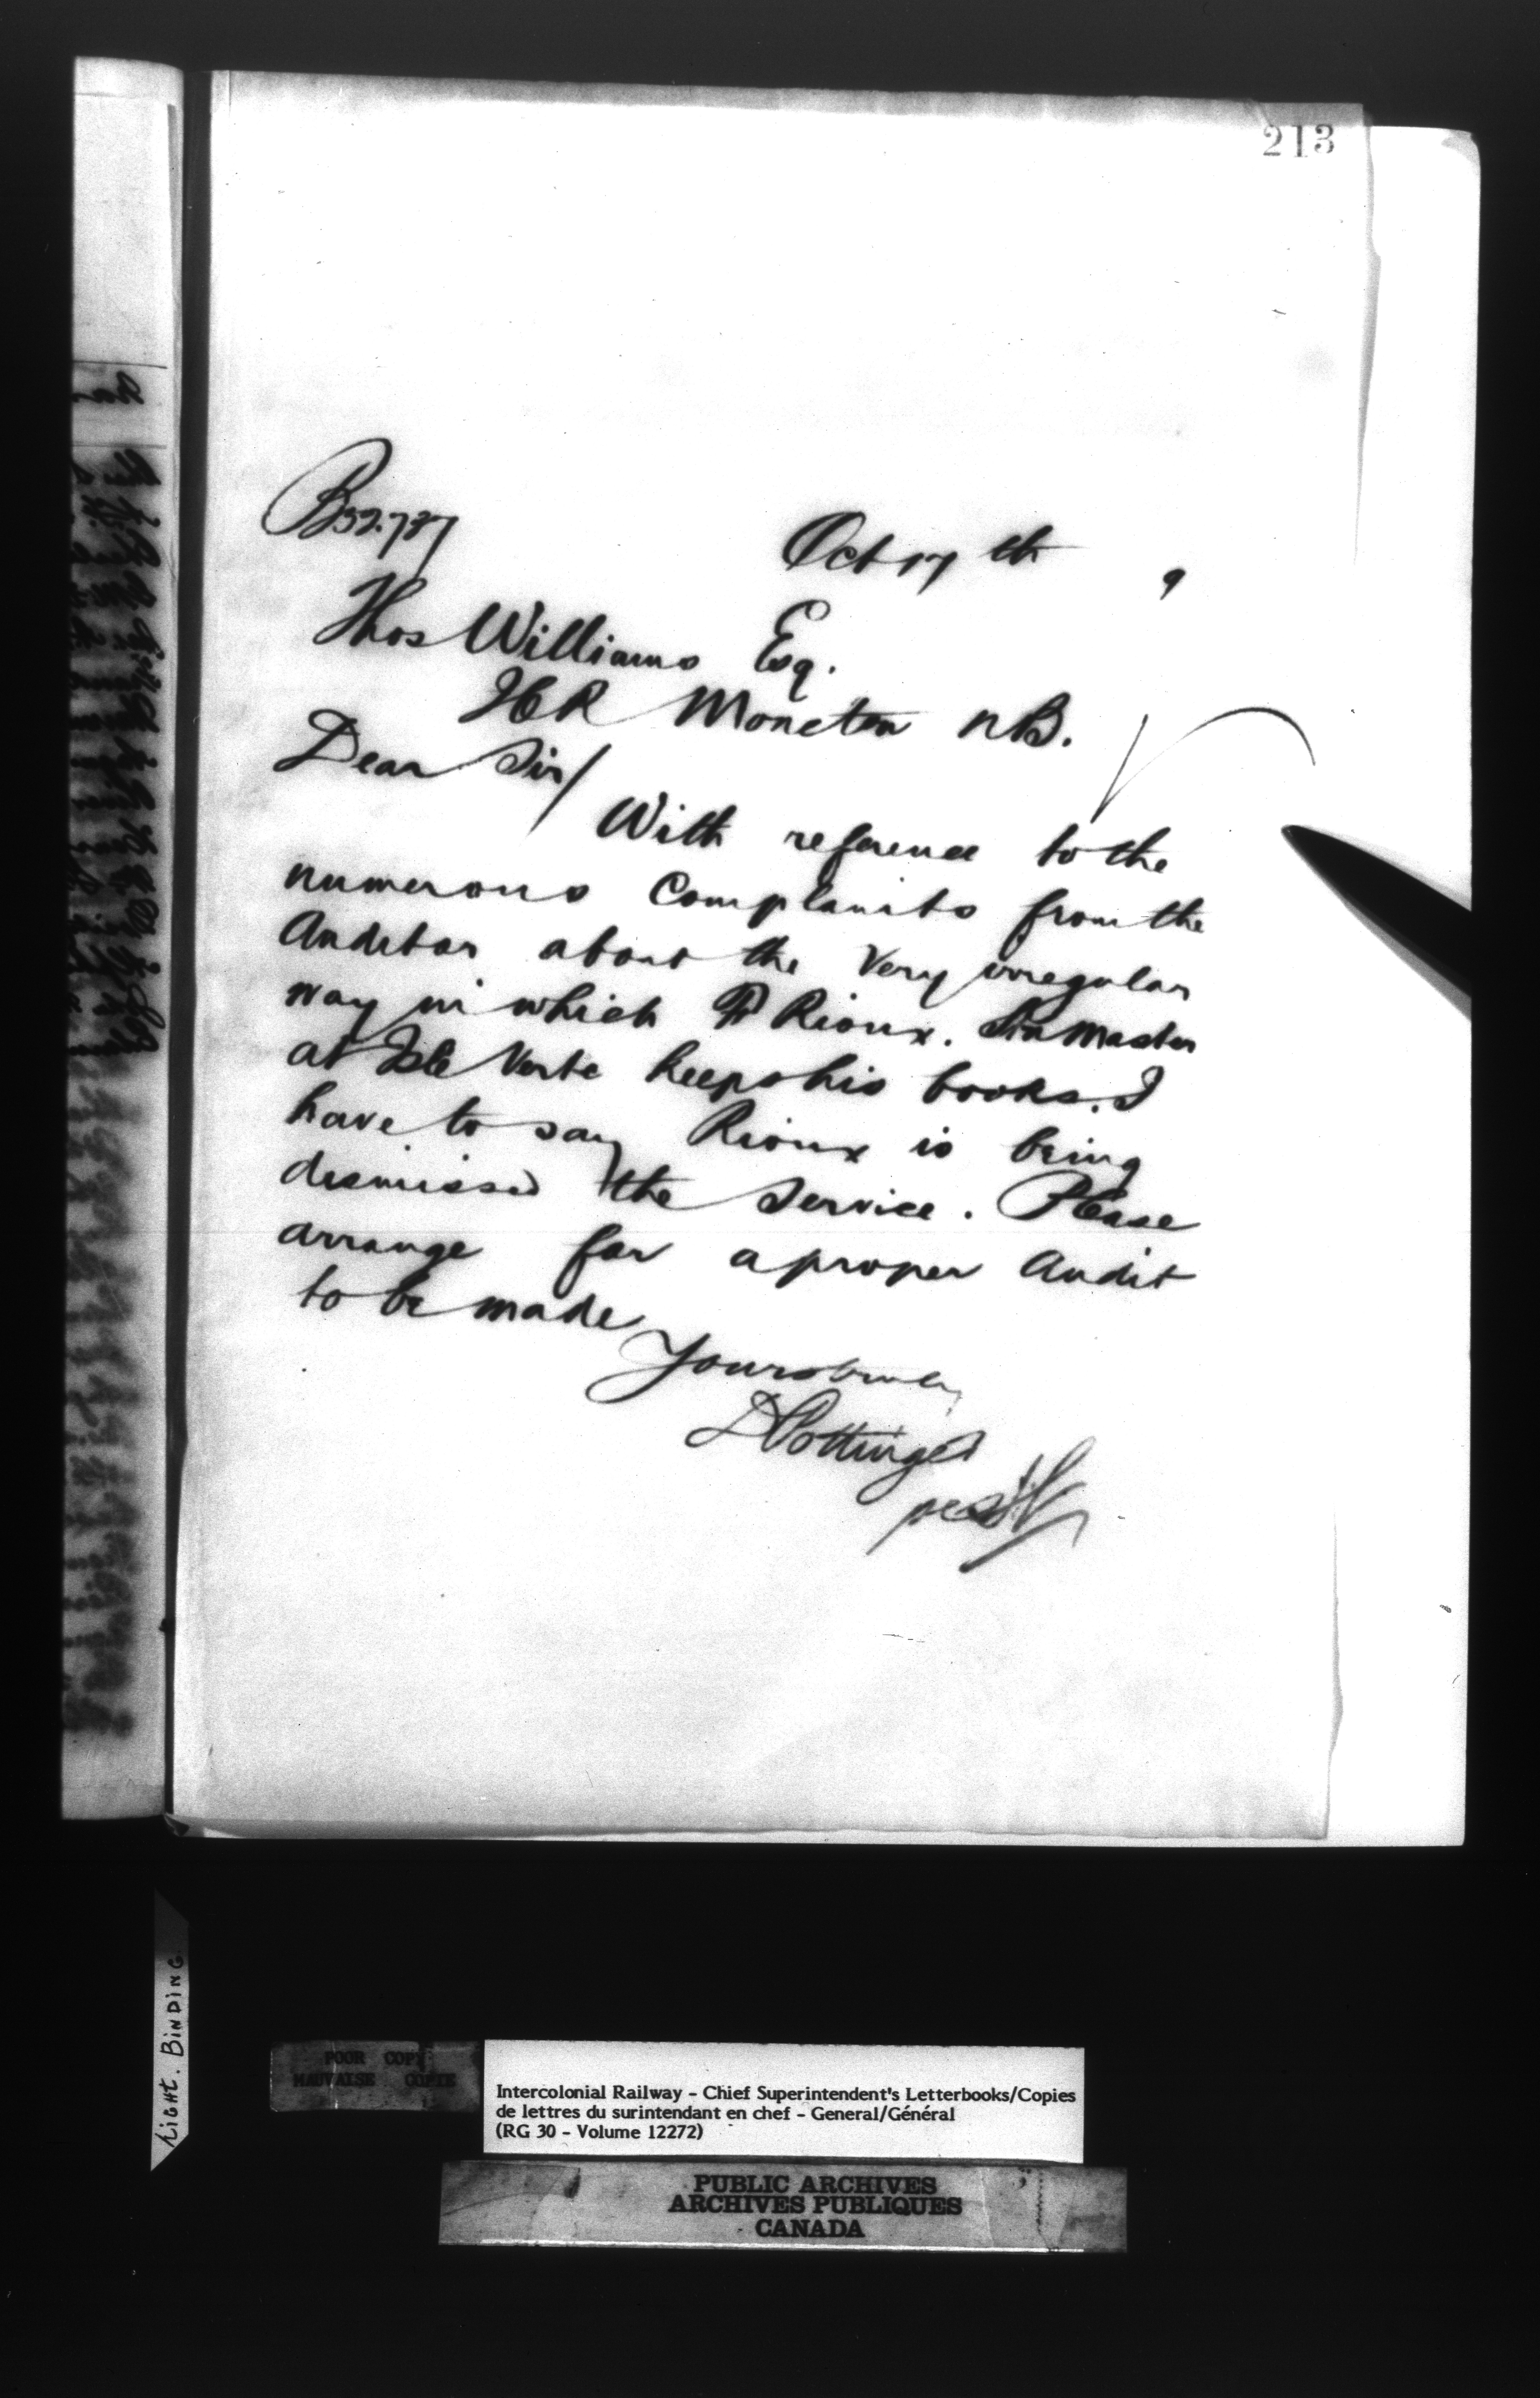 213
B32.737
Oct 17th 9
Thos Williams Esq.
ICR Moncton NB.
Dear Sir/
With reference to the
numerous Complaints from the
Auditor about the Very irregular
way in which P Rioux. Stn Master
at Isle Verte keeps his books. I
have to say Rioux is being
dismissed the Service. Please
arrange for a proper Audit
to be made
Yours truly
D Pottinger
per
TIGHT. BINDING
POOR COPY
MAUVAISE COPIE
Intercolonial Railway - Chief Superintendent's Letterbooks/Copies
de lettres du surintendant en chef - General/Général
(RG 30 - Volume 12272)
PUBLIC ARCHIVES
ARCHIVES PUBLIQUES
CANADA